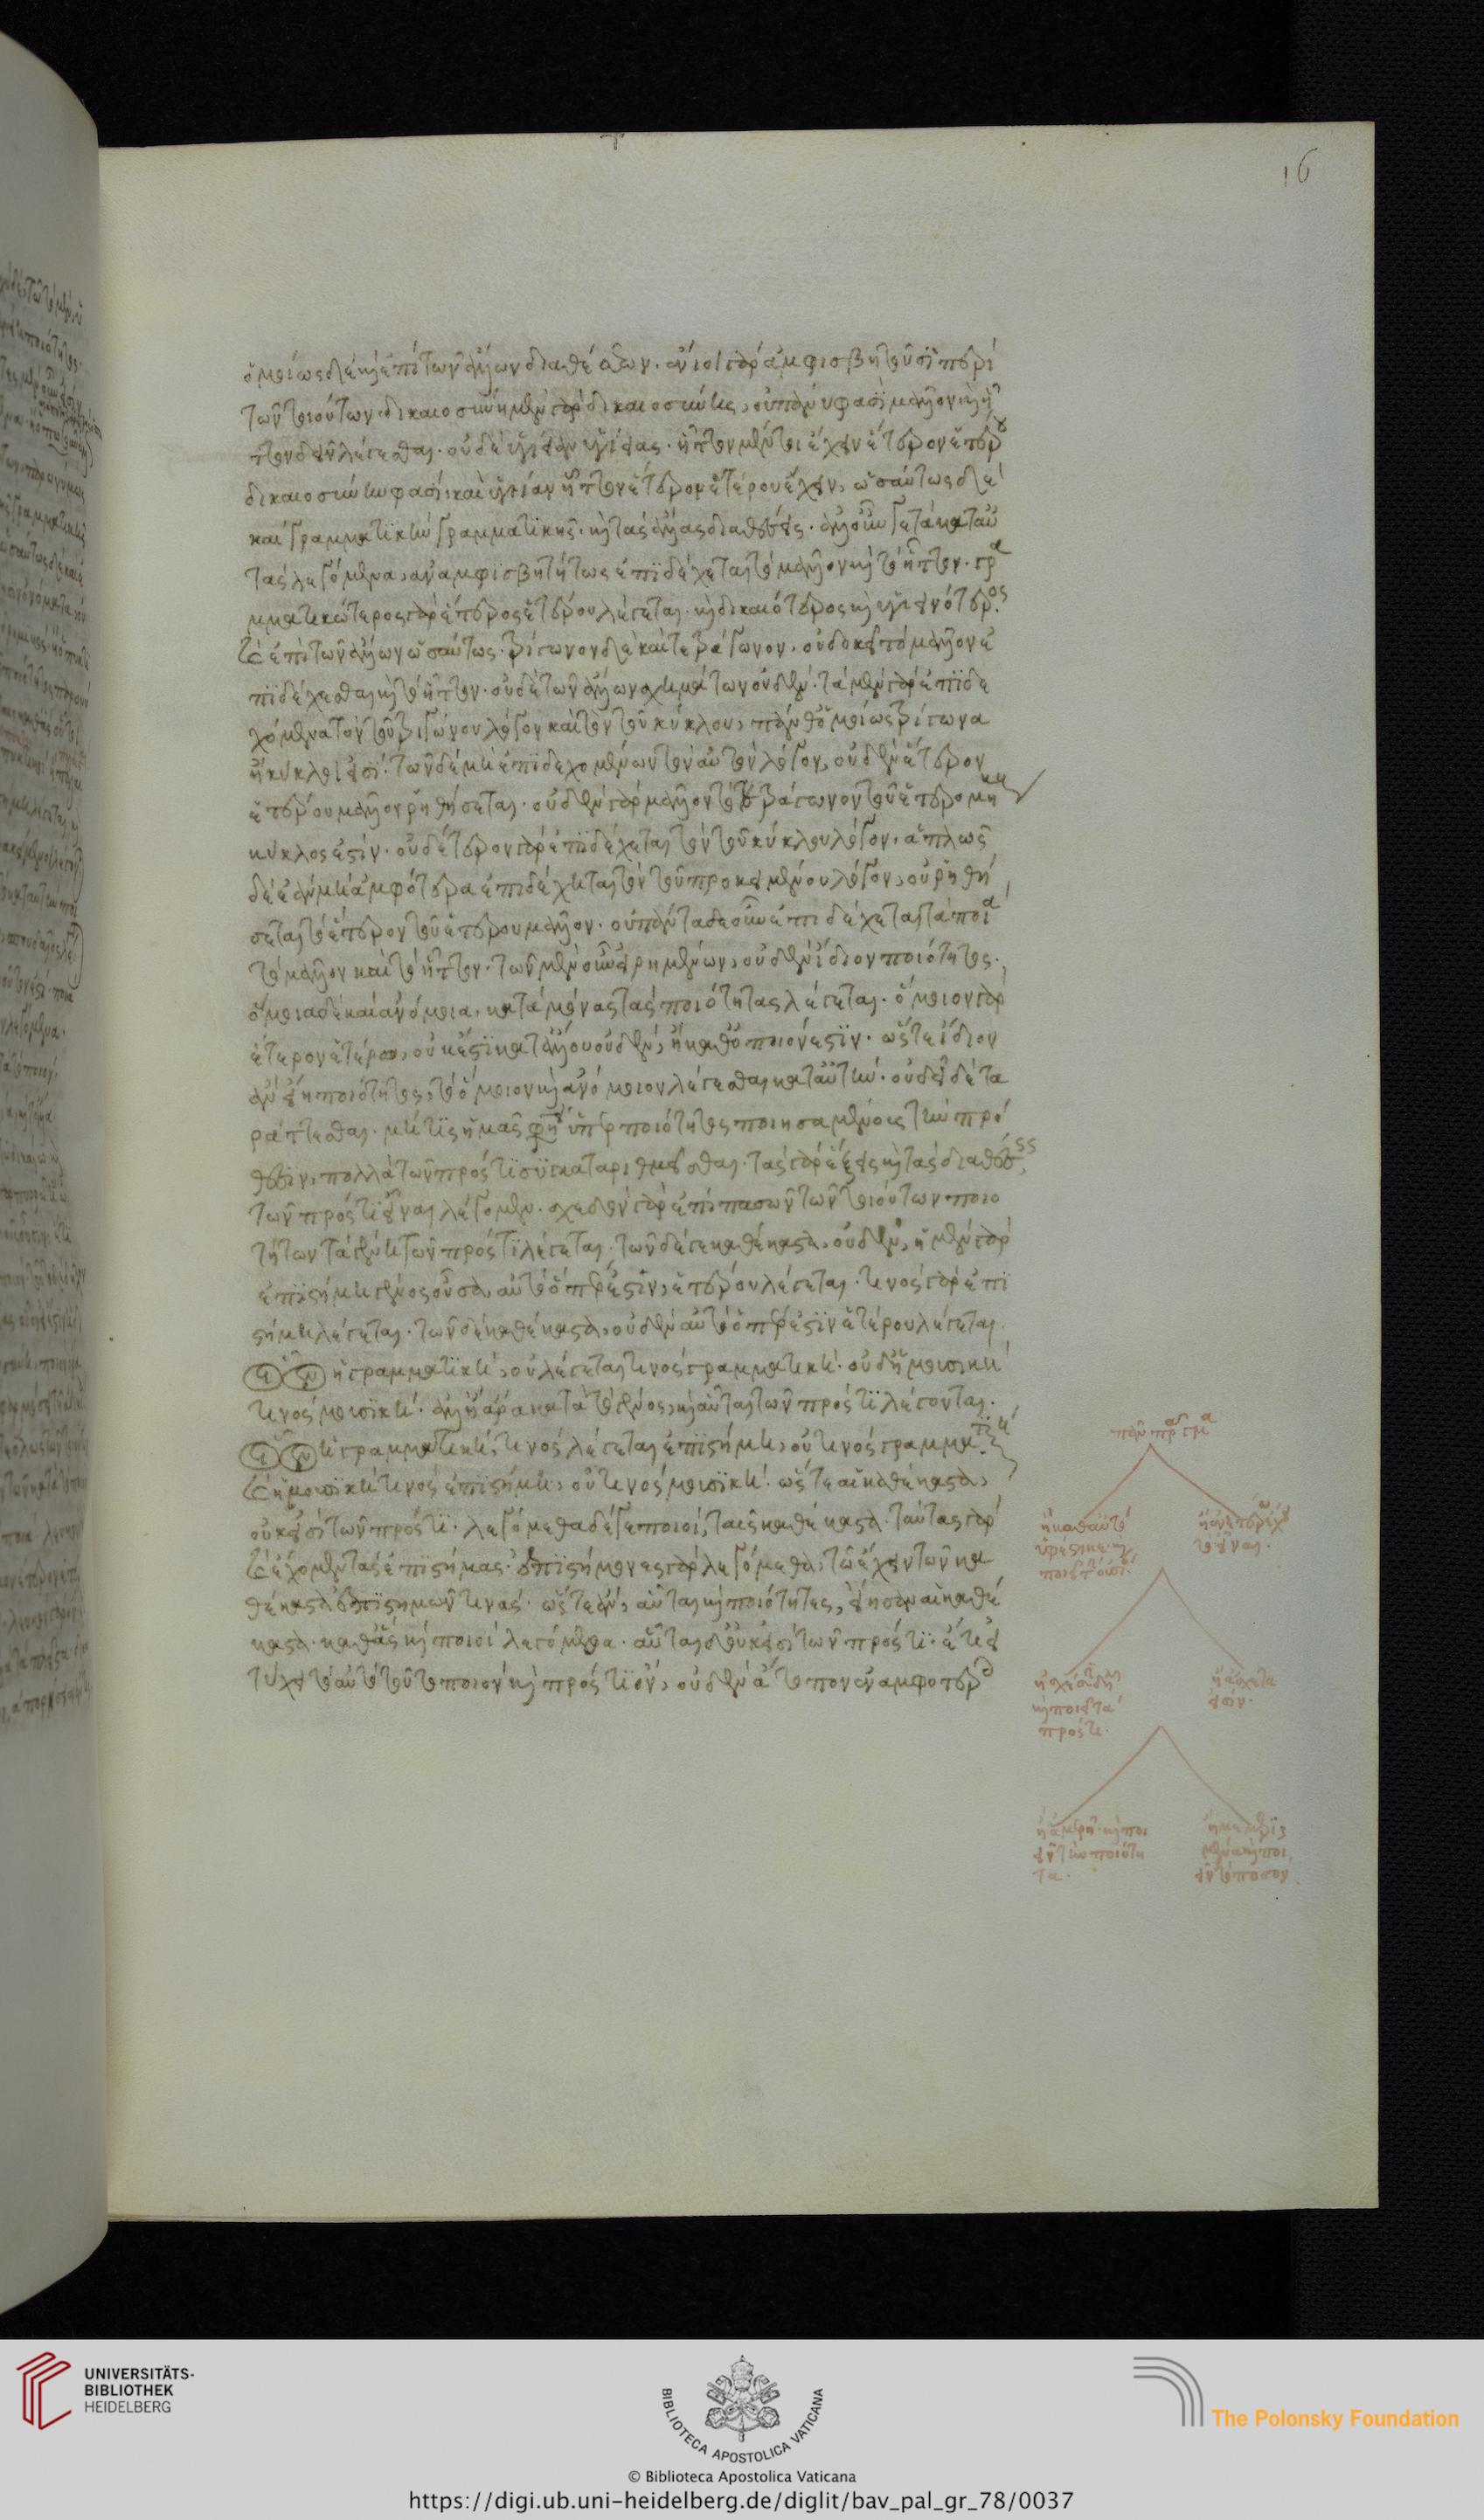 16
ὁμοίως δὲ καὶ ἐπὶ τῶν ἄλλων διαθέσεων. ἔνιοι γὰρ ἀμφισβητοῦσι περὶ
τῶν τοιούτων. δικαιοσύνην μὲν γὰρ δικαιοσύνης, οὐ πάνυ φασὶ μᾶλλον καὶ ἧτ
τον δεῖν λέγεσθαι. οὐδὲ ὑγίειαν ὑγιείας. ἧττον μέντοι ἔχειν ἕτερον ἑτέρου
δικαιοσύνην φασί, καὶ ὑγείαν ἧττον ἕτερον ἑτέρου ἔχειν, ὡσαύτως δὲ
καὶ γραμματικὴν γραμματικῆς. καὶ τὰς ἄλλας διαθέσεις. ἀλλ' οὖν γε τὰ κατ' αὐ
τὰς λεγόμενα, ἀναμφισβητήτως ἐπιδέχεται τὸ μᾶλλον καὶ τὸ ἧττον. γρα
μματικώτερος γὰρ ἕτερος ἑτέρου λέγεται. καὶ δικαιότερος καὶ ὑγιεινότερος.
καὶ ἐπὶ τῶν ἄλλων ὡσαύτως. τρίγωνον δὲ καὶ τετράγωνον, οὐ δοκεῖ τὸ μᾶλλον ἐ
πιδέχεσθαι καὶ τὸ ἧττον. οὐδὲ τῶν ἄλλων σχημάτων οὐδέν. τὰ μὲν γὰρ ἐπιδε
χόμενα τὸν τοῦ τριγώνου λόγον καὶ τὸν τοῦ κύκλου, πάνθ' ὁμοίως τρίγωνα
ἢ κύκλοι εἰσί. τῶν δὲ μὴ ἐπιδεχομένων τὸν αὐτὸν λόγον, οὐδὲν ἕτερον
ἑτέρου μᾶλλον ῥηθήσεται. οὐδὲν γὰρ μᾶλλον τὸ τετράγωνον τοῦ ἑτερομήκους
κύκλος ἐστίν. οὐδέτερον γὰρ ἐπιδέχεται τὸν τοῦ κύκλου λόγον. ἁπλῶς
δὲ ἐὰν μὴ ἀμφότερα ἐπιδέχηται τὸν τοῦ προκειμένου λόγον, οὐ ῥηθή
σεται τὸ ἕτερον τοῦ ἑτέρου μᾶλλον. οὐ πάντα δὲ οὖν ἐπιδέχεται τὰ ποιὰ
τὸ μᾶλλον καὶ τὸ ἧττον. τῶν μὲν οὖν εἰρημένων, οὐδὲν ἴδιον ποιότητος.
ὅμοια δὲ καὶ ἀνόμοια, κατὰ μόνας τὰς ποιότητας λέγεται. ὅμοιον γὰρ
ἕτερον ἑτέρου, οὐκ ἔστι κατ' ἄλλου οὐδέν, ἢ καθὸ ποιόν ἐστιν. ὥστε ἴδιον
ἂν εἴη ποιότητος, τὸ ὅμοιον καὶ ἀνόμοιον λέγεσθαι κατ' αὐτήν. οὐ δεῖ δὲ τα
ράττεσθαι. μή τις ἡμᾶς φῇ ὑπὲρ ποιότητος ποιησαμένους τὴν πρό
θεσιν, πολλὰ τῶν πρός τι συγκαταριθμεῖσθαι. τὰς γὰρ ἕξεις καὶ τὰς διαθέσεις,
τῶν πρός τι εἶναι λέγομεν. σχεδὸν γὰρ ἐπὶ πασῶν τῶν τοιούτων ποιο
τήτων τὰ γένη τῶν πρός τι λέγεται. τῶν δέ γε καθέκαστα, οὐδέν, ἡ μὲν γὰρ
ἐπιστήμη γένος οὖσα, αὐτὸ ὅπερ ἐστίν, ἑτέρου λέγεται. τινὸς γὰρ ἐπι
στήμη λέγεται. τῶν δὲ καθέκαστα, οὐδὲν αὐτὸ ὅπερ ἐστὶν ἑτέρου λέγεται.
οἷον ἡ γραμματική, οὐ λέγεται τινὸς γραμματική. οὐδ' ἡ μουσικὴ
τινὸς μουσική. ἀλλ' ἢ ἄρα κατὰ τὸ γένος, καὶ αὗται τῶν πρός τι λέγονται.
οἷον ἡ γραμματική, τινὸς λέγεται ἐπιστήμη, οὐ τινὸς γραμματική
καὶ ἡ μουσικὴ τινὸς ἐπιστήμη, οὐ τινὸς μουσική. ὥστε αἱ καθέκαστα,
οὐκ εἰσὶ τῶν πρός τι. λεγόμεθα δέ γε ποιοί, ταῖς καθέκαστα. ταύτας γὰρ
καὶ ἔχομεν τὰς ἐπιστήμας. ἐπιστήμονες γὰρ λεγόμεθα, τῷ ἔχειν τῶν κα
θέκαστα ἐπιστημῶν τινάς. ὥστε ἂν, αὗται καὶ ποιότητες, εἴησαν αἱ καθέ
καστα. καθ' ἃς καὶ ποιοὶ λεγόμεθα. αὗται δὲ οὐκ εἰσὶ τῶν πρός τι. ἔτι εἰ
τύχοι τὸ αὐτὸ τοῦτο ποιὸν καὶ πρός τι ὄν, οὐδὲν ἄτοπον ἐν ἀμφοτέρ
πᾶν πρᾶγμα
ἢ καθ' αὑτὸ
ὑφέστηκε καὶ
ποιεῖ τὴν οὐσίαν.
ἢ ἐν ἑτέρῳ ἔχει
τὸ εἶναι.
ἢ σχέσει
καὶ ποιεῖ τὰ
πρός τι.
ἢ ἄσχετα
εἰσίν.
ἢ ἀμερῆ καὶ ποι
εῖ τὴν ποιότη
τα.
ἢ μεμερισ
μένα καὶ ποι
εῖ τὸ ποσόν
UNIVERSITÄTS-
BIBLIOTHEK
HEIDELBERG
BIBLIOTECA APOSTOLICA VATICANA
© Biblioteca Apostolica Vaticana
The Polonsky Foundation
https://digi.ub.uni-heidelberg.de/diglit/bav_pal_gr_78/0037